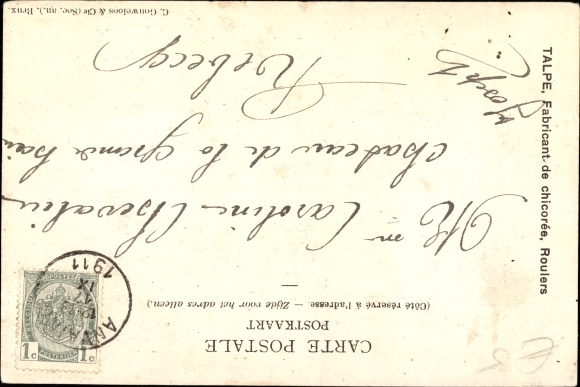 CARTE POSTALE
POSTKAART
(Côté réservé à l'adresse. — Zijde voor het adres alleen.)
Mme Caroline Chevalier
Chateau de la grande haie
Rebecq
TALPE, Fabricant de chicorée, Roulers
C. Gouweloos & Cie (Soc. an.), Brux.
1911
1c 1c